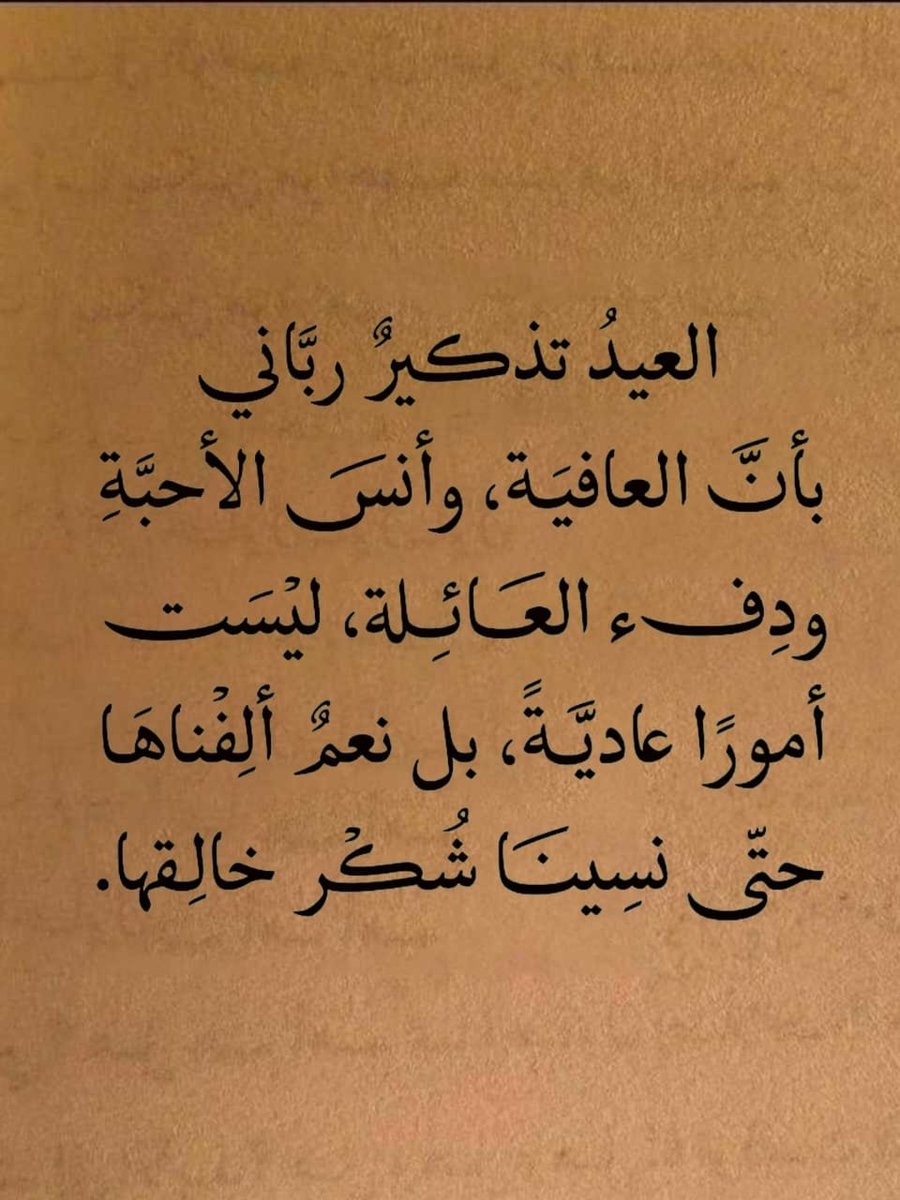 العيدُ تذكيرٌ ربَّاني
بأنَّ العافيَة، وأنسَ الأحبَّةِ
ودِفء العَائِلة، ليْسَت
أمورًا عاديَّةً، بل نعمٌ ألِفْناهَا
حتّى نسِينَا شُكْر خالِقها.